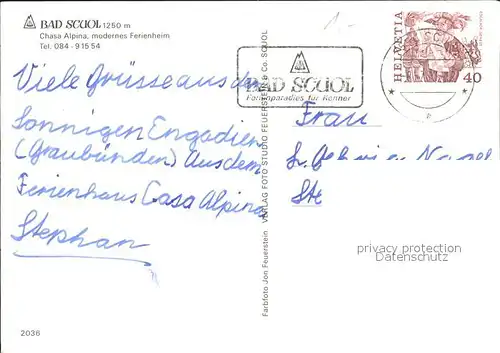 BAD SCUOL 1250 m
Chasa Alpina, modernes Ferienheim
Tel. 084 - 9 15 54
Viele Grüsse aus dem
sonnigen Engadien
(Graubünden) Aus dem
Ferienhaus Casa Alpina
Stephan
2036
Farbfoto Jon Feuerstein VERLAG FOTO STUDIO FEUERSTEIN & Co. SCUOL
1.-
BAD SCUOL
Ferienparadies für Kenner
HELVETIA
40
Frau
privacy protection
Datenschutz